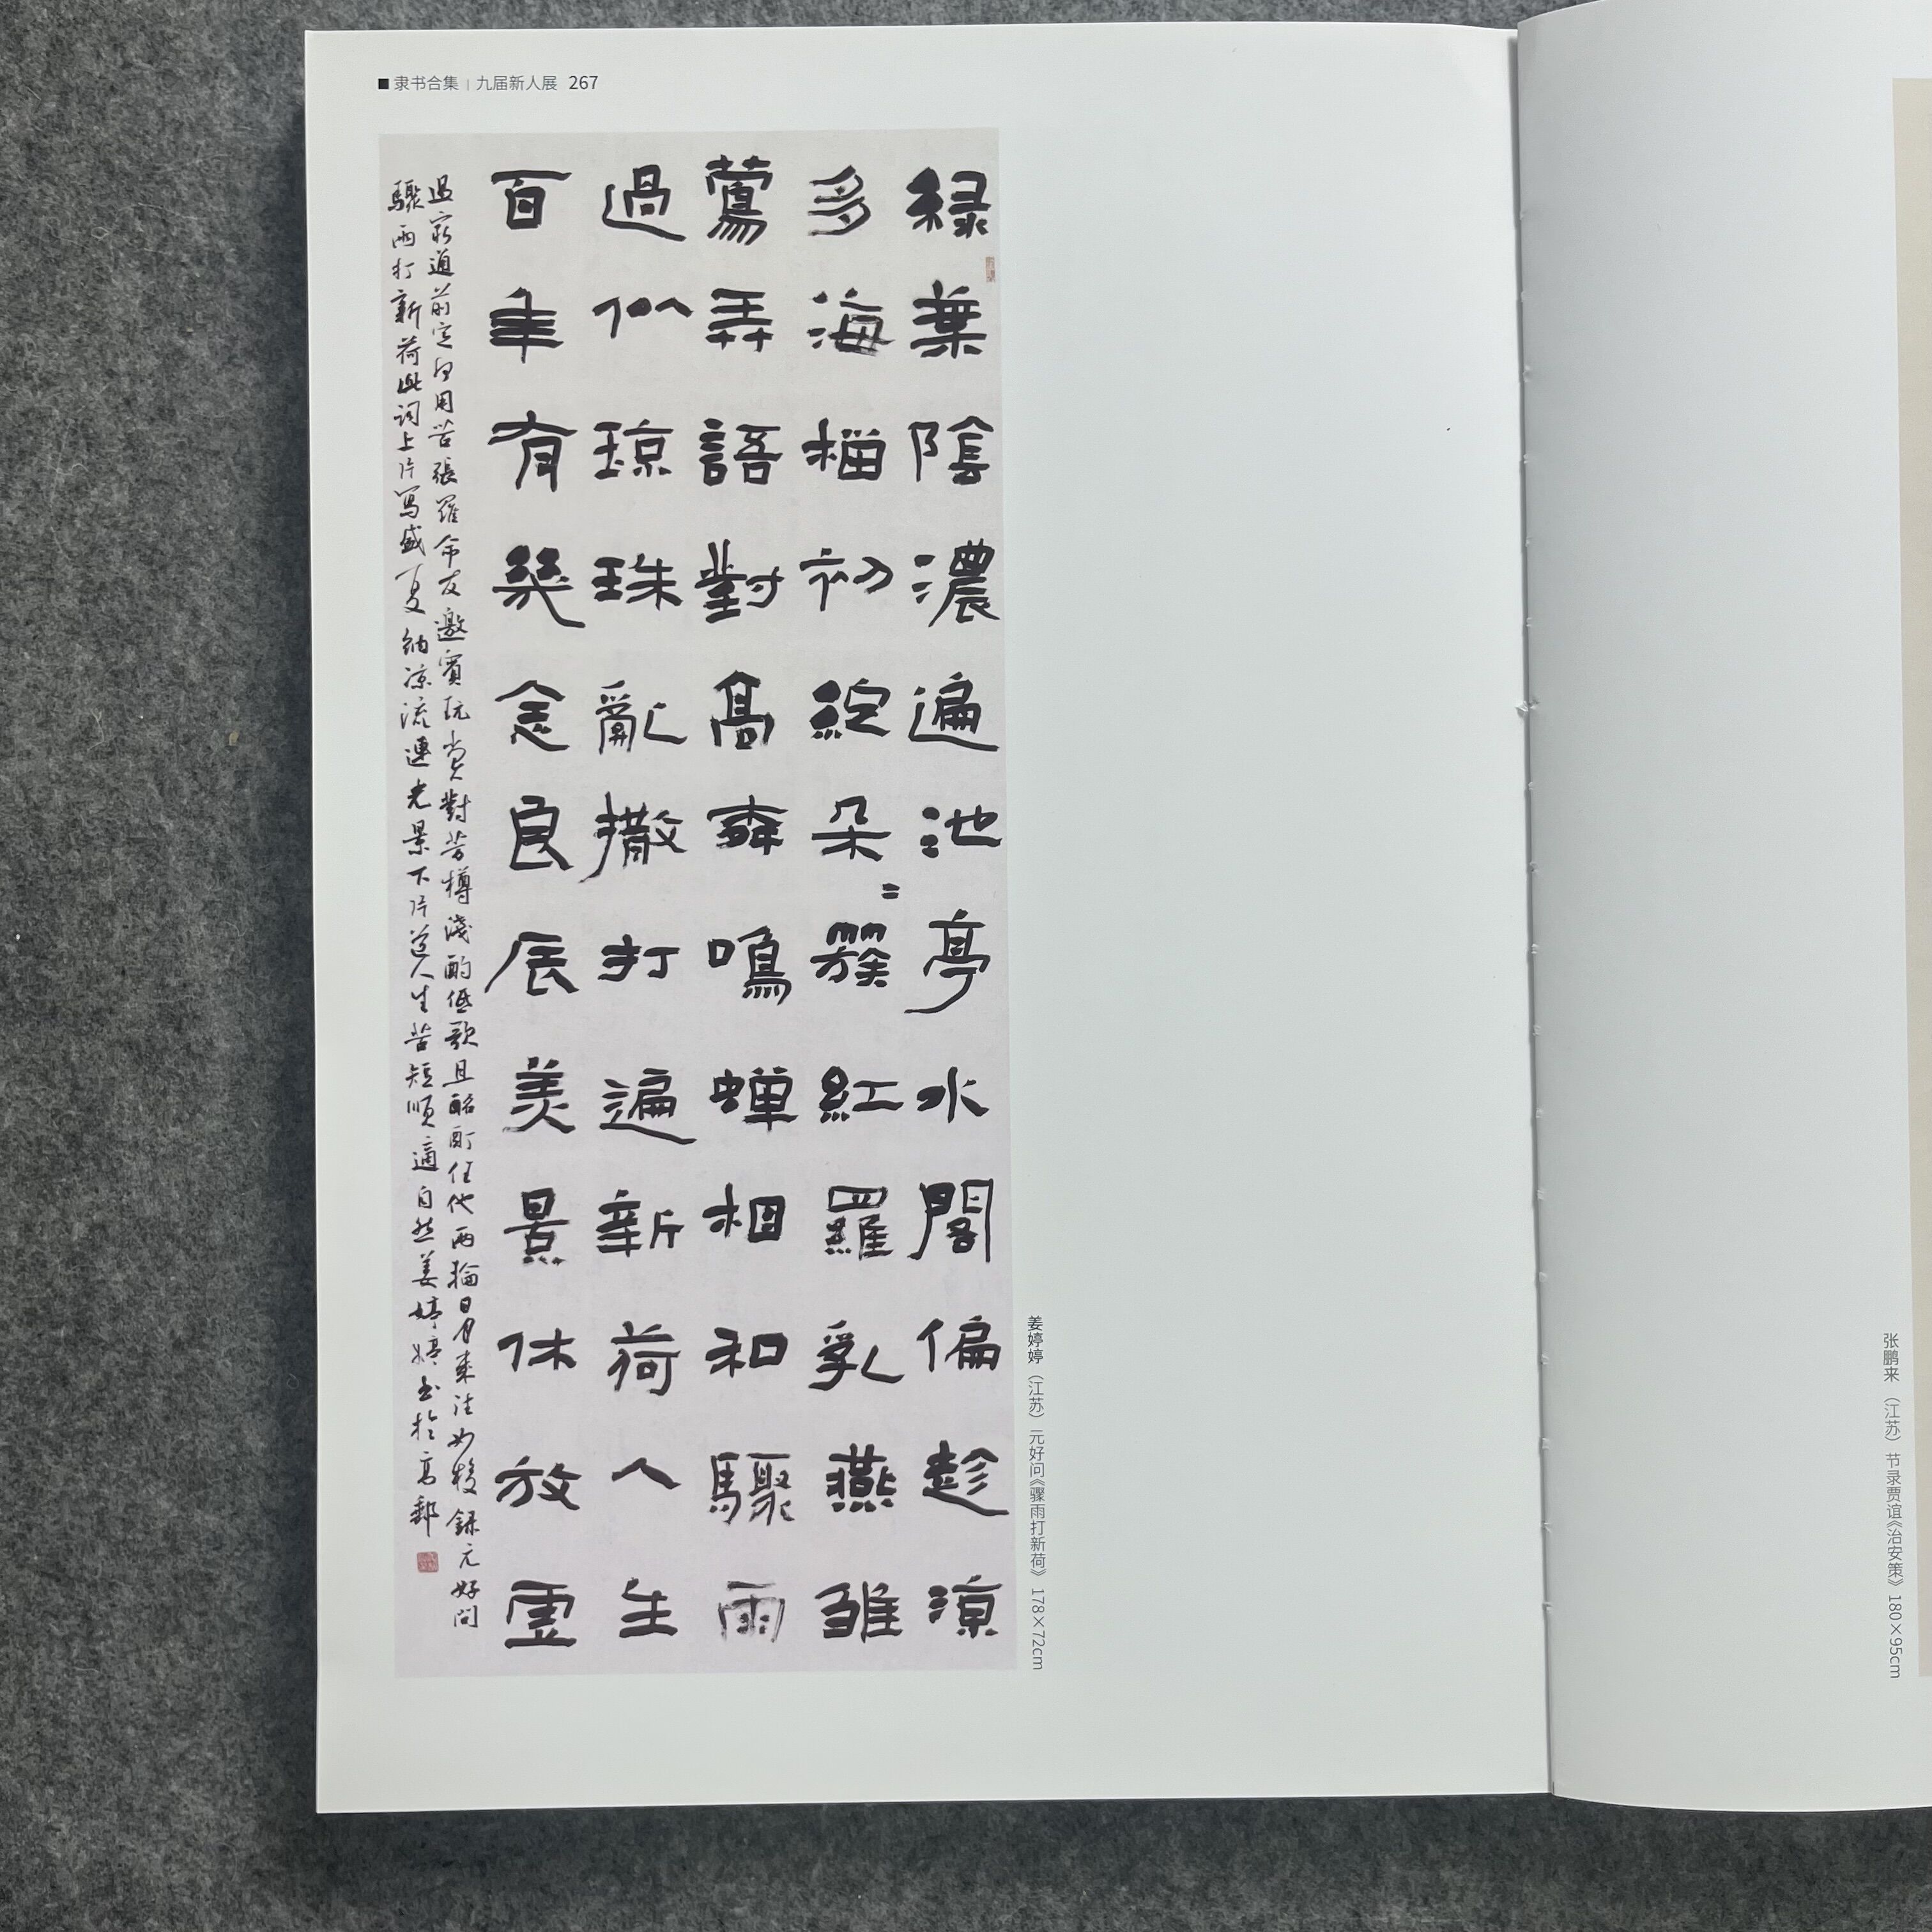 隶书合集 | 九届新人展 267
緑葉陰濃遍池亭水閣偏趁涼
多海榴初綻朵〻簇紅羅乳燕雏
鶯弄語對高柳鳴蟬相和驟雨
過似琼珠亂撒打遍新荷人生
百年有幾念良辰美景休放虚
過窮通前定何用苦張羅命友邀賓玩賞對芳樽淺酌低歌且酩酊任他兩輪日月來往如梭録元好問
驟雨打新荷此詞上片寫盛夏納凉流連光景下片道人生苦短順適自然姜婷婷书於高郵
姜婷婷（江苏） 元好问《骤雨打新荷》 178×72cm
张鹏来（江苏） 节录贾谊《治安策》 180×95cm